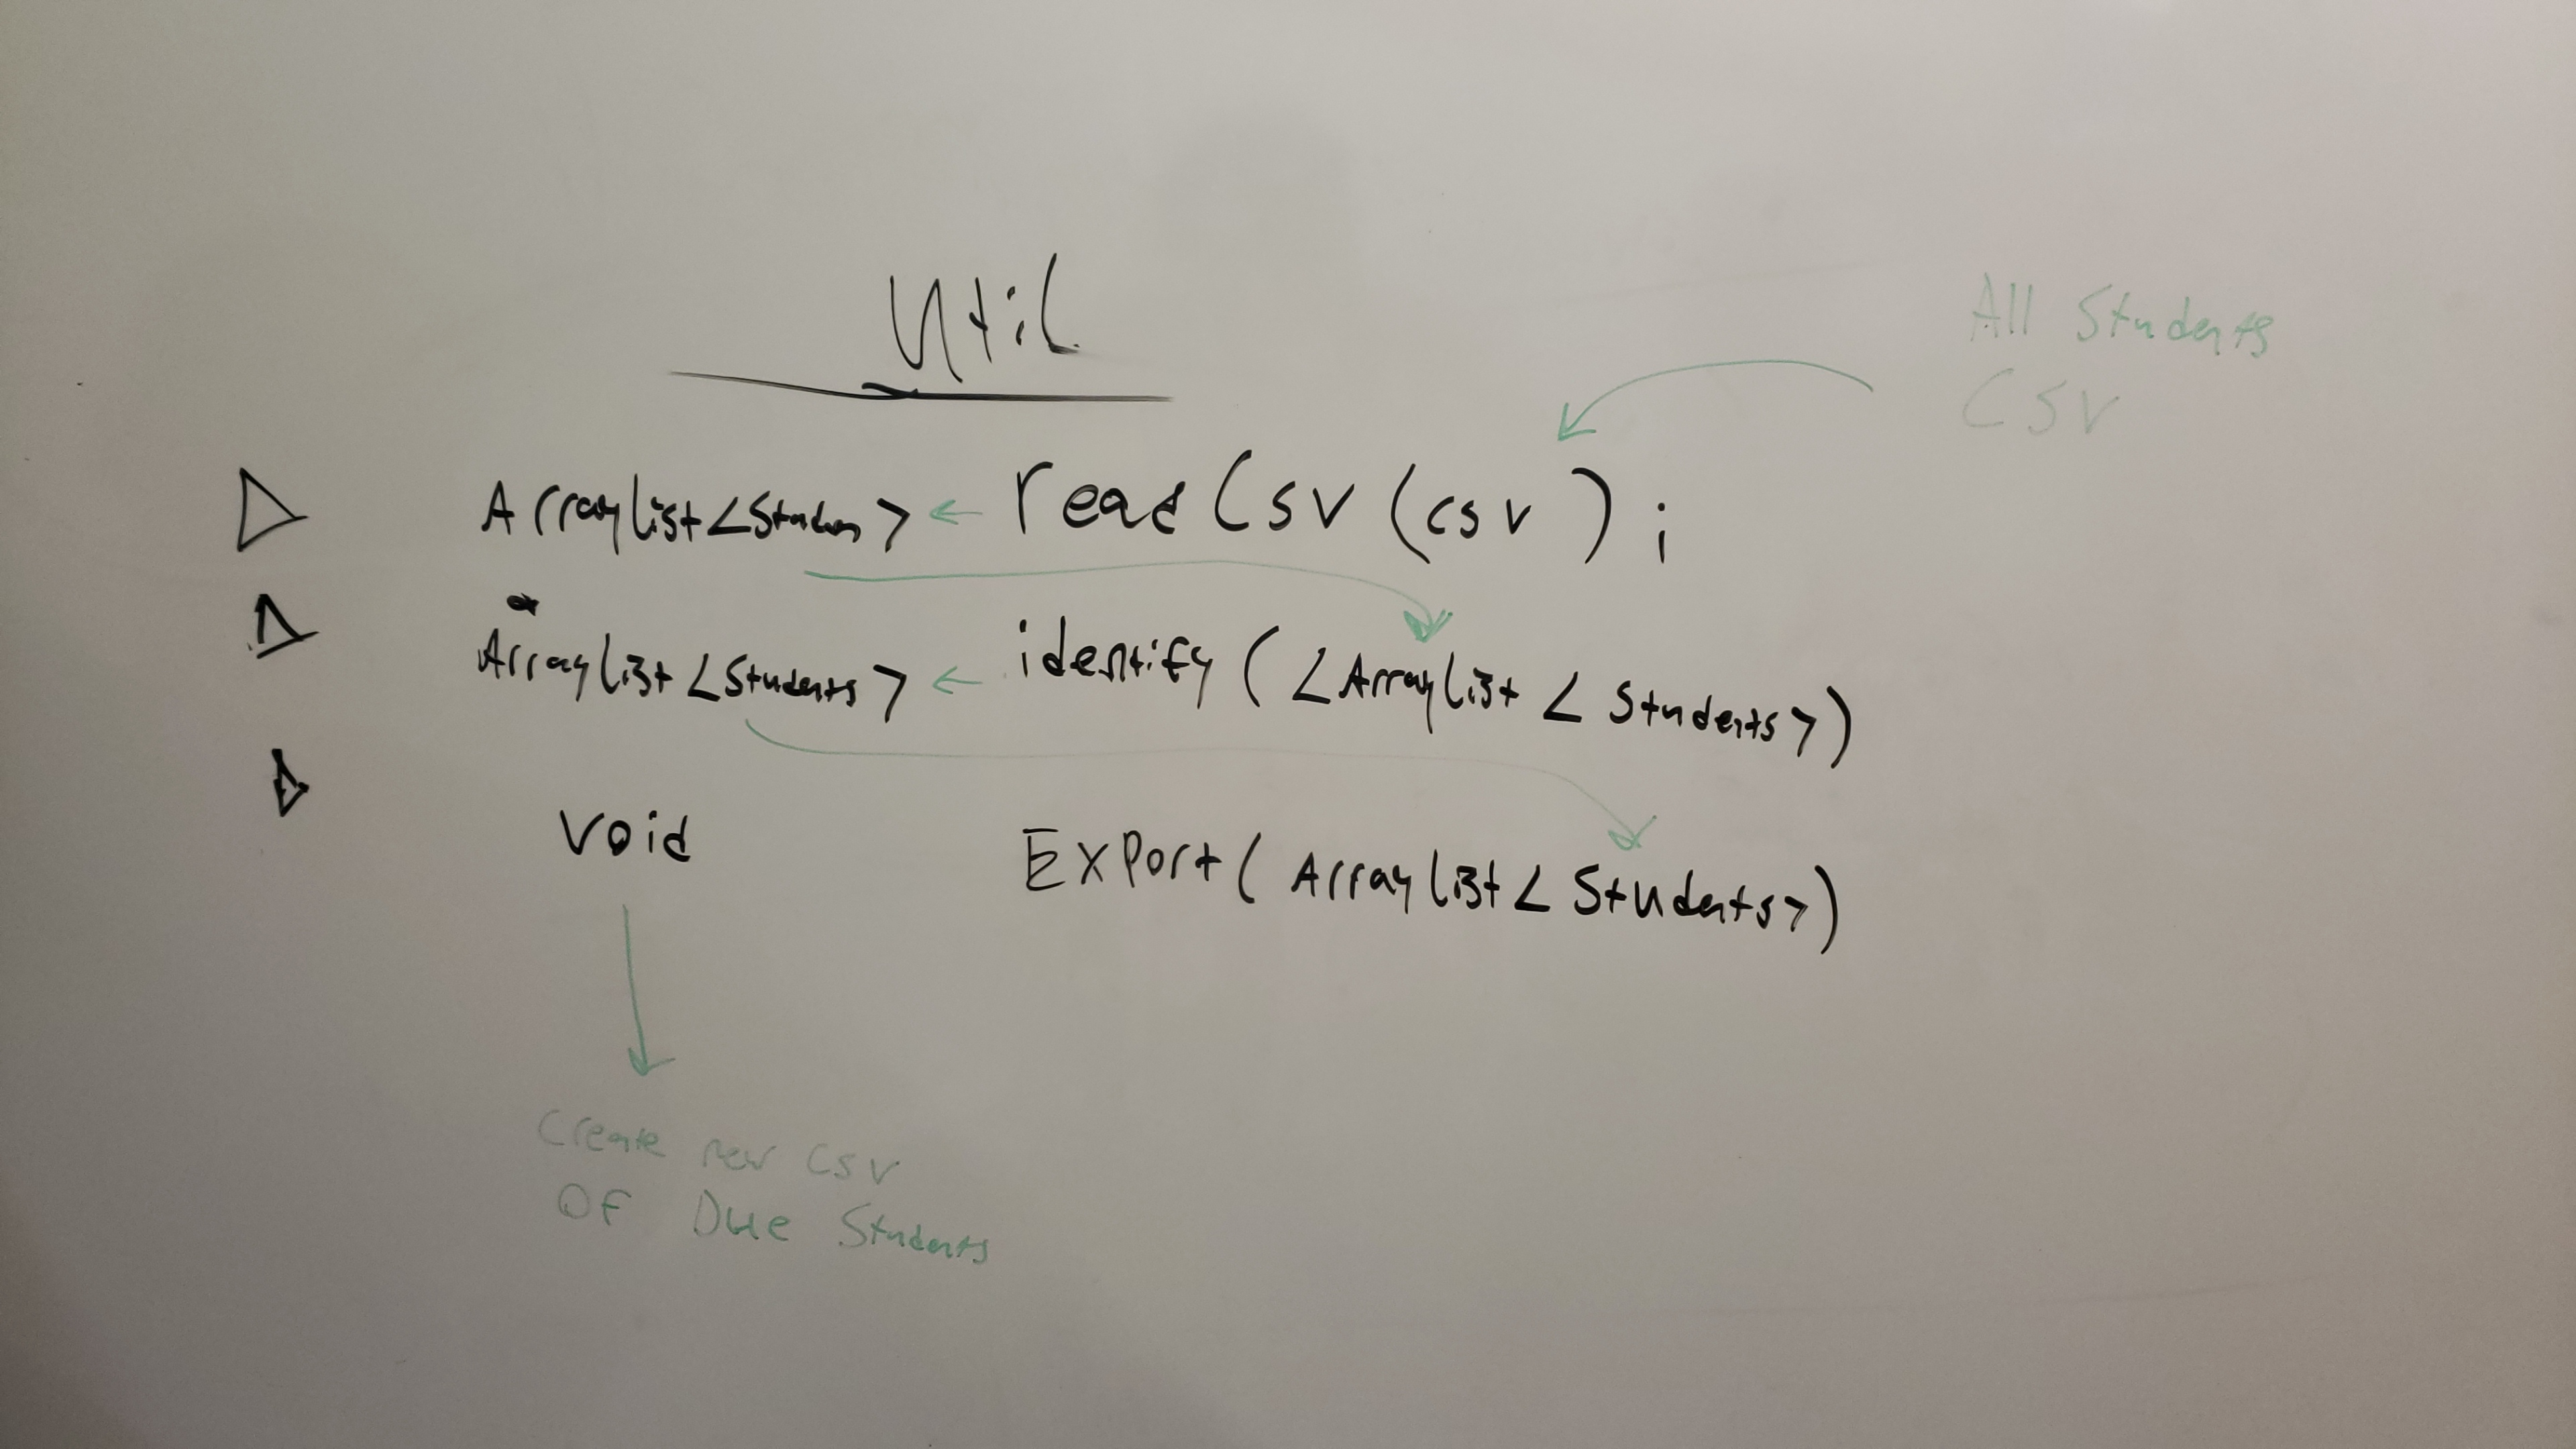 Util
All Students
CSV
ArrayList<Studen> ← readCSV(csv);
ArrayList<Students> ← identify(<ArrayList<Students>)
void Export(ArrayList<Students>)
Create new CSV
Of Due Students